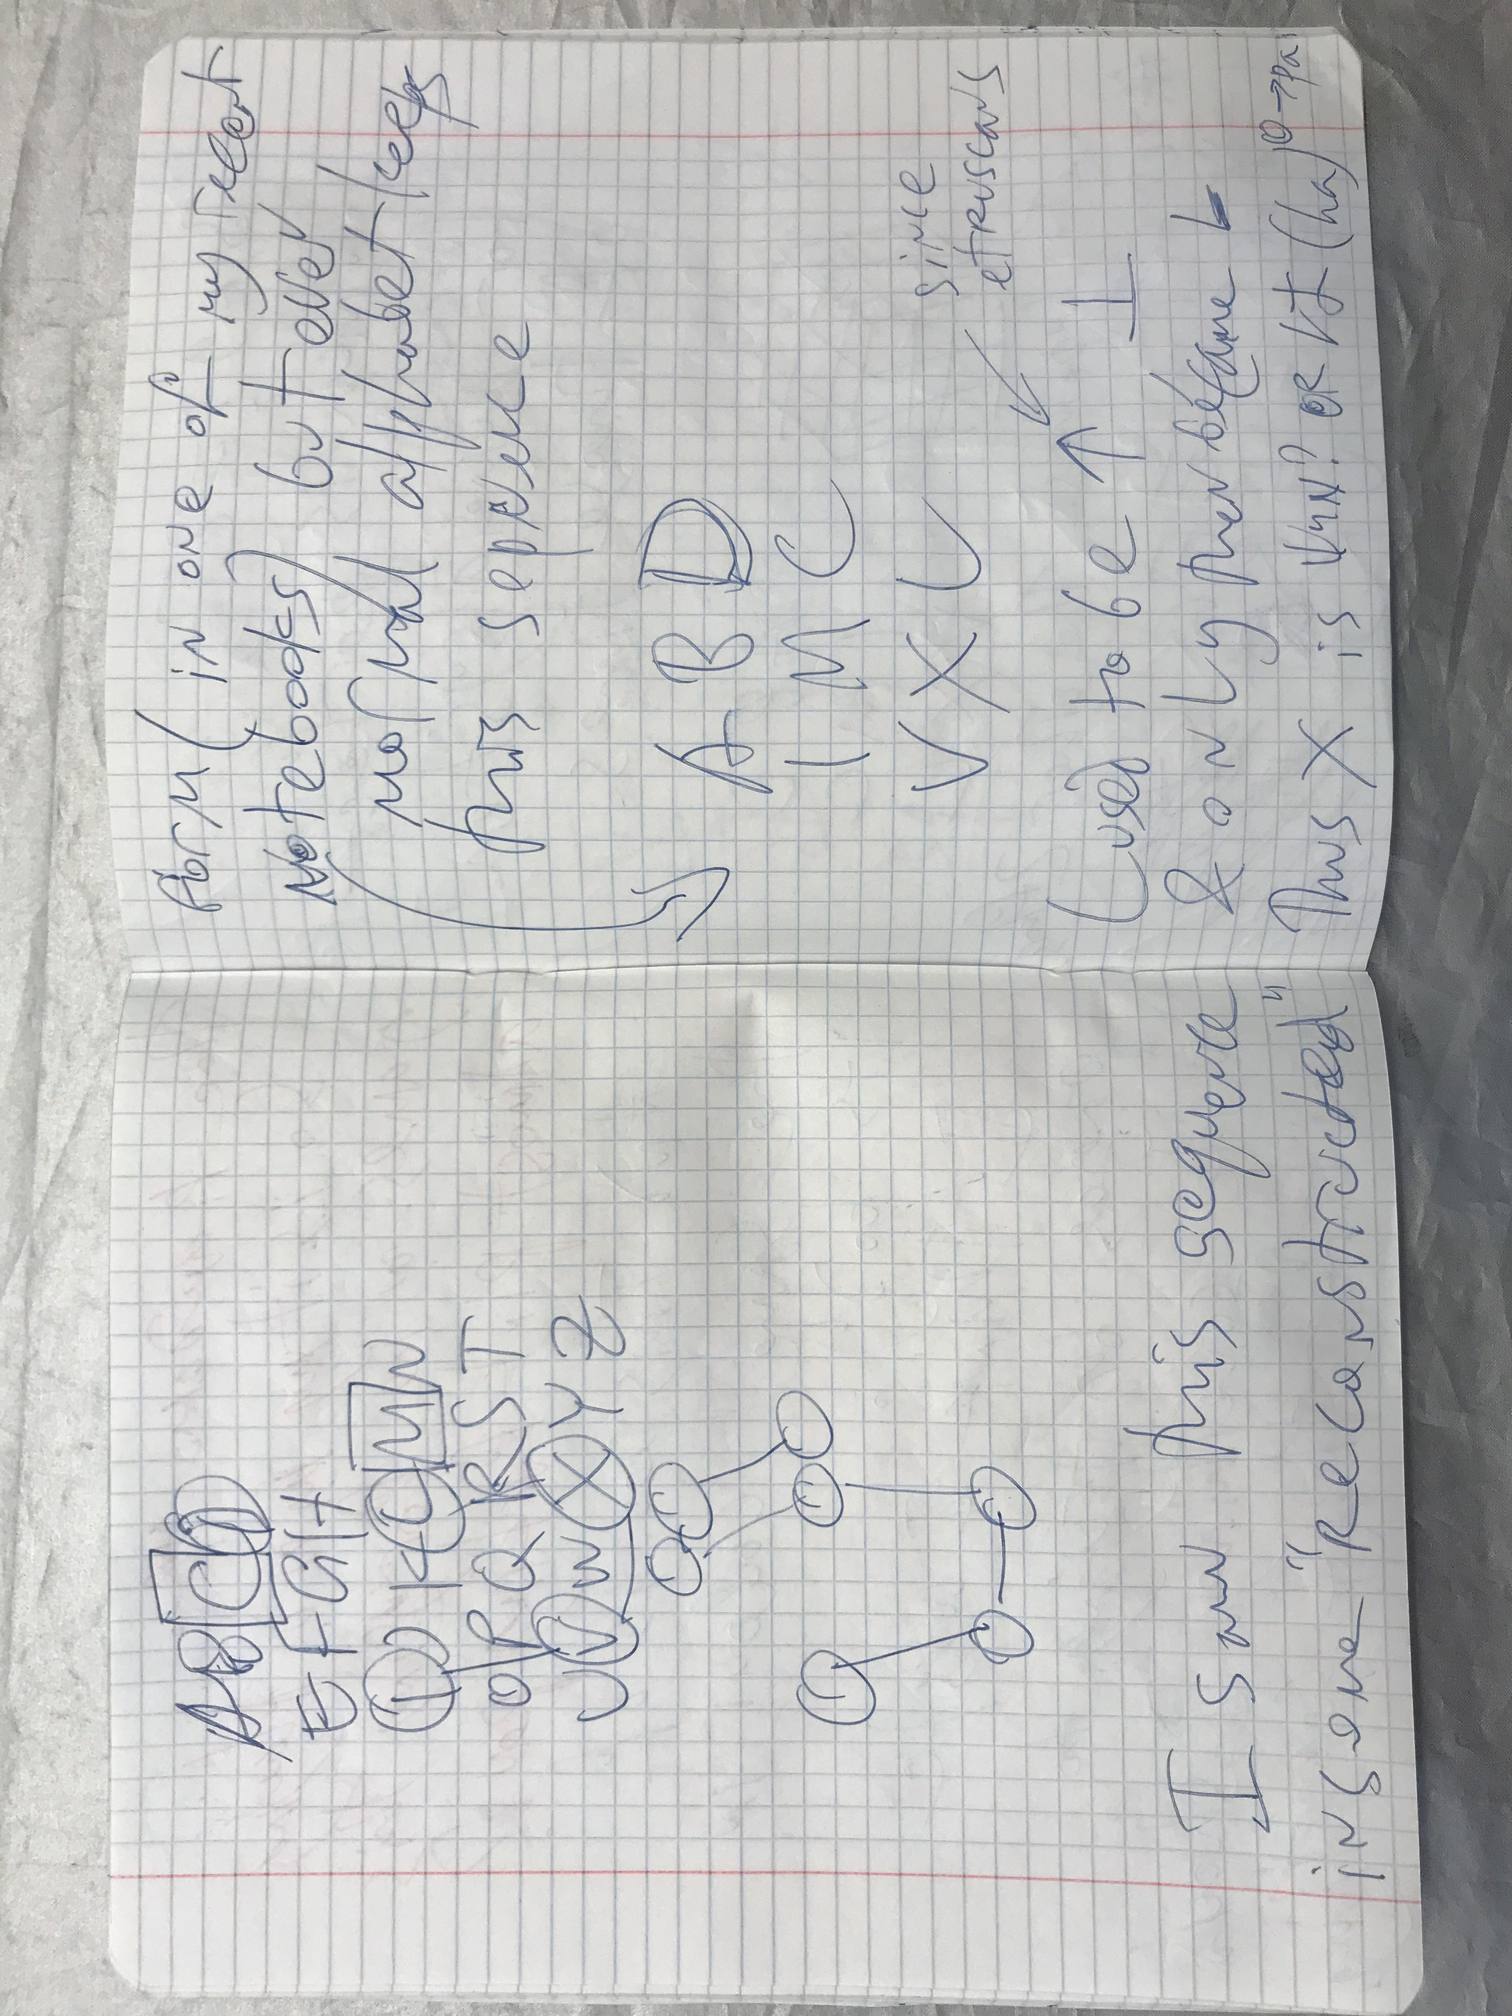 ABCD
EFGH
I K L M N
O P Q R S T
U V W X Y Z
I saw this sequence
in some "Reconstructed"
form (in one of my recent
Notebooks) but even
normal alphabet keeps
this sequence
A B D
I M C
V X L
since
etruscans
L used to be ↑ ⊥
& only then became L
Thus X is or (ha)